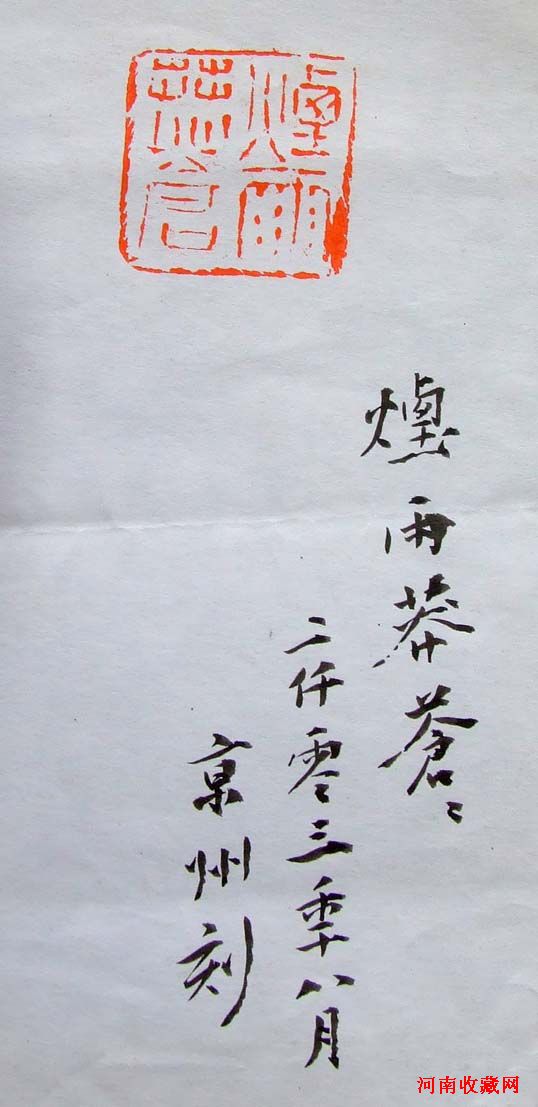 煙雨
莽蒼
煙雨莽蒼
二仟零三年八月
京州刻
河南收藏网